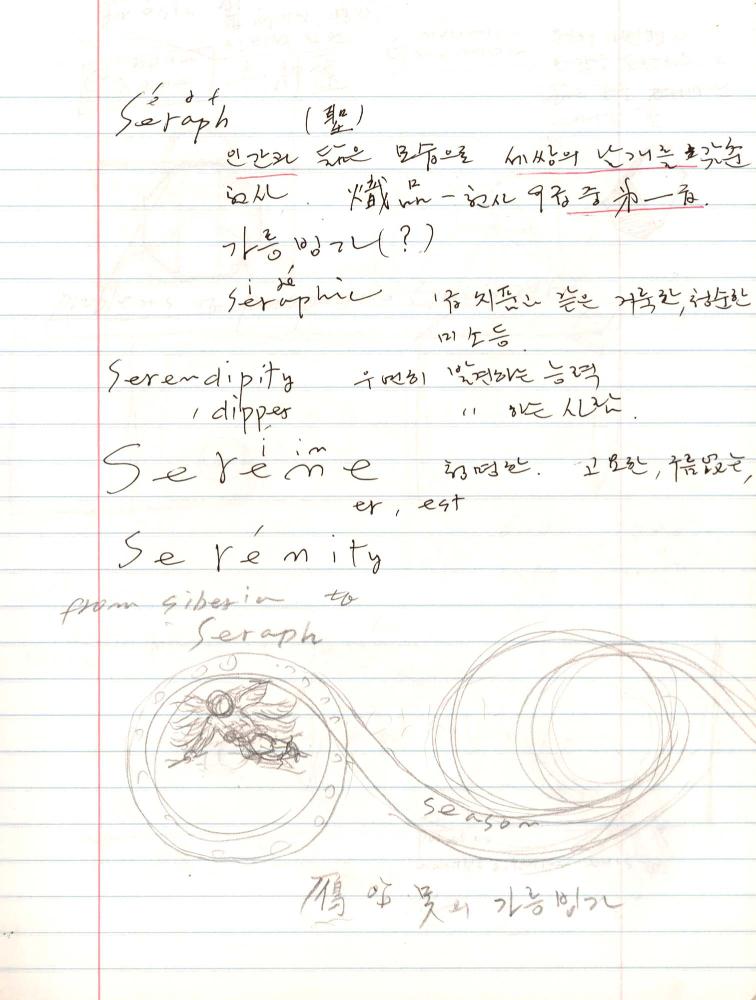 é ə f
Séraph (聖)
인간과 닮은 모습으로 세쌍의 날개를 갖춘
천사. 熾品 - 천사 9급 중 第一급.
가릉빙가(?)
i ǽ
seraphic 같은 거룩한, 청순한
미소등.
Serendipity 우연히 발견하는 능력
, dipper 〃 하는 사람.
i in
Seréne 청명한. 고요한, 구름없는,
er, est
Serénity
from siberia to
Seraph
season
雁 압 못의 가릉빙가